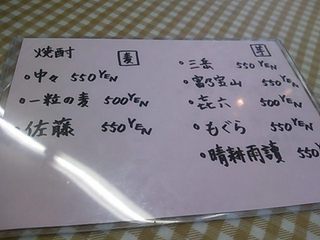 焼酎 麦
・中々 550YEN
・一粒の麦 500YEN
・佐藤 550YEN
芋
・三岳 550YEN
・富乃宝山 550YEN
・㐂六 500YEN
・もぐら 550YEN
・晴耕雨讀 550Y